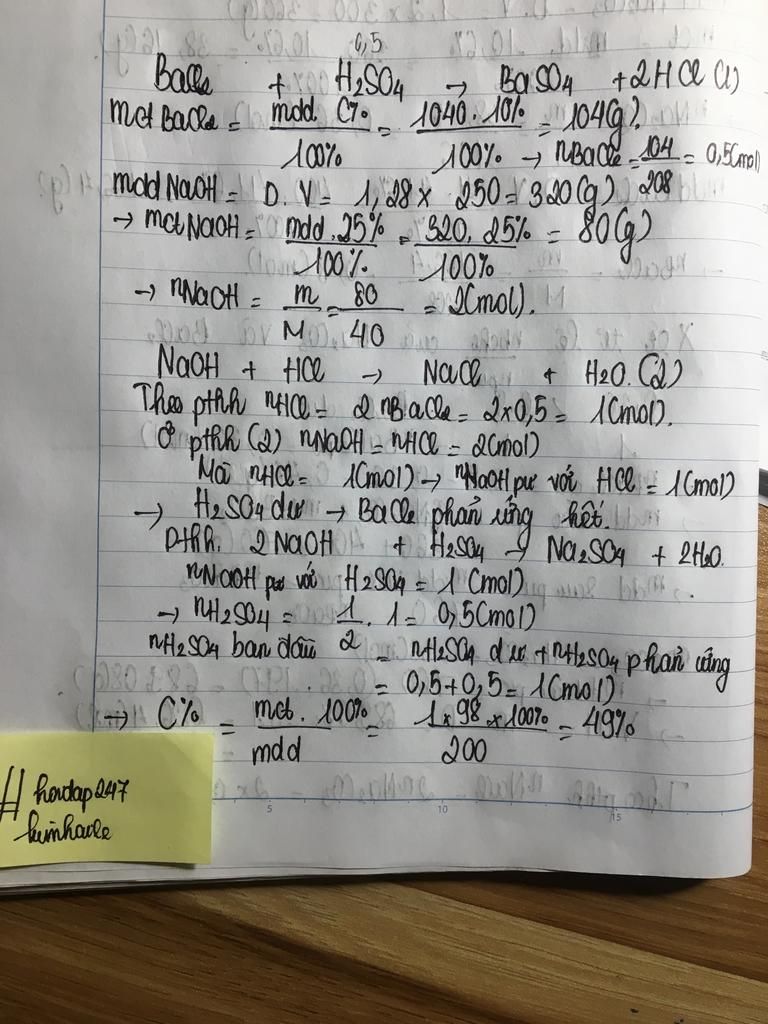 0,5
BaCl2 + H2SO4 → BaSO4 + 2HCl (1)
mct BaCl2 = mdd. C% / 100% = 1040. 10% / 100% = 104(g).
→ nBaCl2 = 104 / 208 = 0,5(mol)
mdd NaOH = D. V = 1,28 x 250 = 320(g)
→ mct NaOH = mdd. 25% / 100% = 320. 25% / 100% = 80(g)
→ nNaOH = m / M = 80 / 40 = 2(mol).
NaOH + HCl → NaCl + H2O. (2)
Theo pthh nHCl = 2 nBaCl2 = 2x0,5 = 1(mol).
Ở pthh (2) nNaOH = nHCl = 2(mol)
Mà nHCl = 1(mol) → nNaOH pư với HCl = 1(mol)
→ H2SO4 dư → BaCl2 phản ứng hết.
Pthh. 2NaOH + H2SO4 → Na2SO4 + 2H2O.
nNaOH pư với H2SO4 = 1 (mol)
→ nH2SO4 = 1 / 2 . 1 = 0,5(mol)
nH2SO4 ban đầu = nH2SO4 dư + nH2SO4 phản ứng
= 0,5 + 0,5 = 1(mol)
→ C% = mct. 100% / mdd = 1 x 98 x 100% / 200 = 49%
# hoidap247
5 10 15